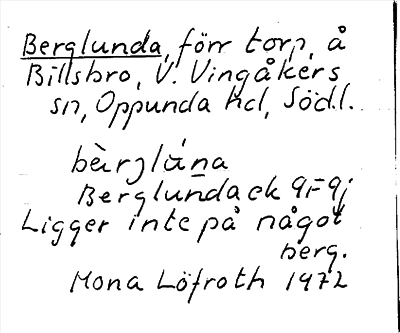 Berglunda, förr torp, å
Billsbro, V. Vingåkers
sn, Oppunda hd, Södl.
bèrglúna
Berglundack
Ligger inte på något
berg.
Mona Löfroth 1972